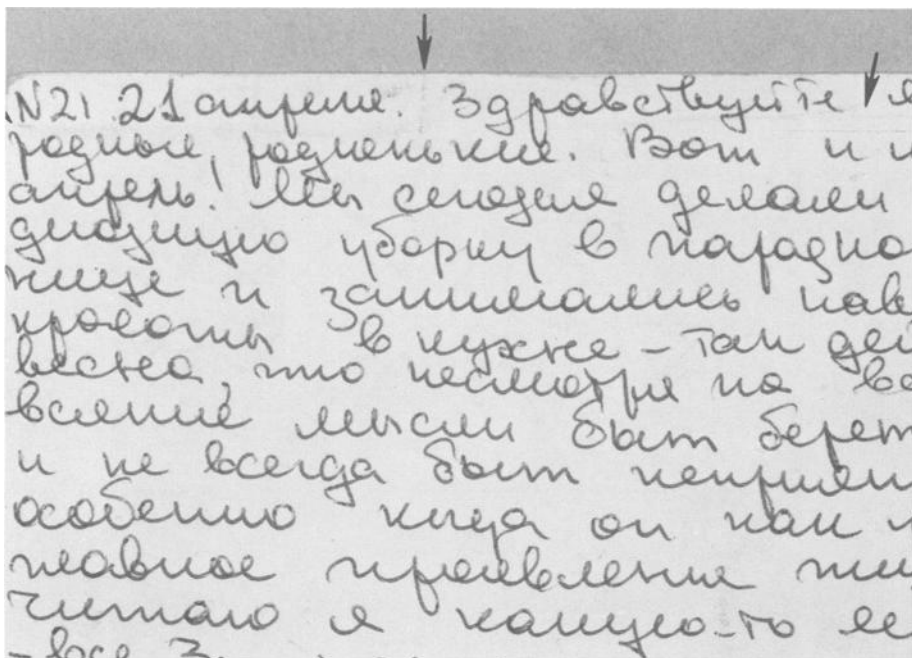 N21. 21 апреля. Здравствуйте
родные, родненькие. Вот и
апрель! Мы сегодня делали
уборку в парадно
нице и занимались нав
красоты в кухне - так дей
весна, что несмотря на
мысли быт берет
и не всегда быт неприят
особенно когда он как
главное проявление жи
Читаю я какую-то
- все